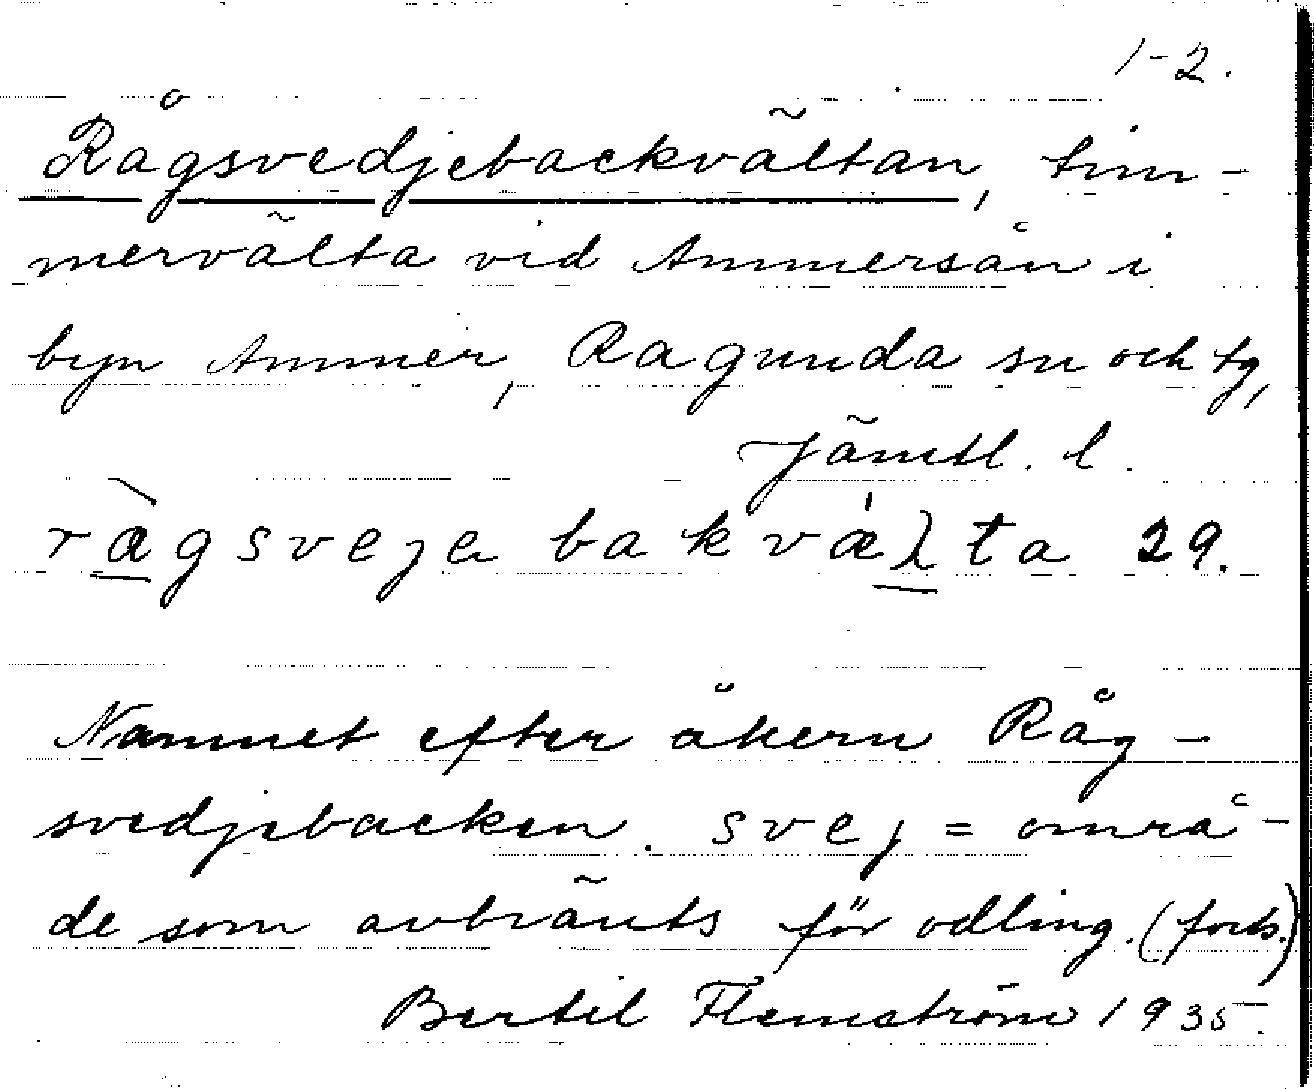 1-2.
Rågsvedjebackvältan, tim-
mervälta vid Ammersån i
byn Ammer, Ragunda sn och tg,
Jämtl. l.
ràgsveje bakvàλta 29.
Namnet efter åkern Råg-
svedjebacken. svej = områ-
de som avbränts för odling. (forts.)
Bertil Flemström 1935.